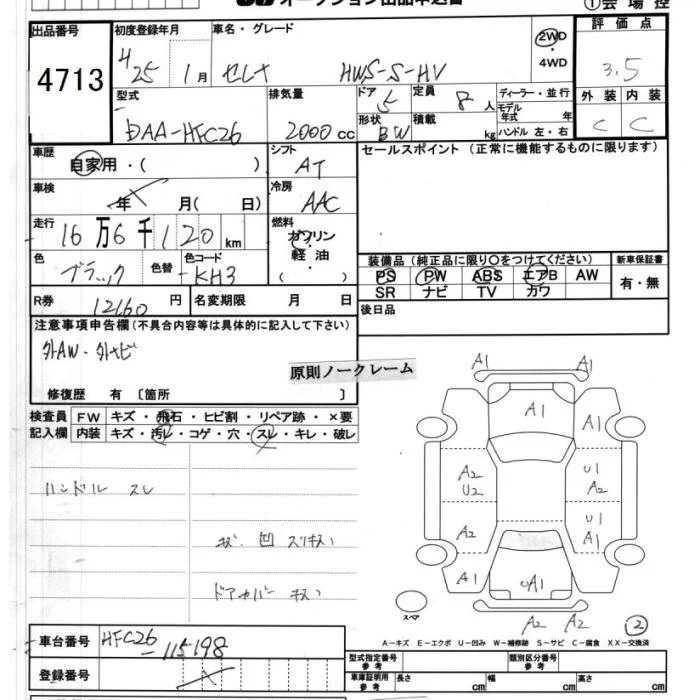 出品番号 初度登録年月 車名・グレード 評価点
4713 4/25 1月 セレナ HWS-S-HV 2WD・4WD 3.5
型式 排気量 ドア 5 定員 8人 ディーラー・並行 外装 内装
DAA-HFC26 2000cc 形状 BW 積載 kg モデル年式 年 ハンドル 左・右 C C
車歴 自家用・( ) シフト AT セールスポイント(正常に機能するものに限ります)
車検 年 月( 日) 冷房 AAC
走行 16万6千120km 燃料 ガソリン・軽油・( )
色 ブラック 色替 色コード KH3 装備品(純正品に限り○をつけてください) 新車保証書
PS PW ABS エアB AW 有・無
SR ナビ TV カワ
R券 12160円 名変期限 月 日 後日品
注意事項申告欄(不具合内容等は具体的に記入して下さい)
外AW・外ナビ
原則ノークレーム
修復歴 有〔箇所 〕
検査員記入欄 FW キズ・飛石・ヒビ割・リペア跡・×要
内装 キズ・汚レ・コゲ・穴・スレ・キレ・破レ
ハンドル スレ
キズ 凹 スリキズ
ドアカバー キズ
A1 A1
A1 A1
A2 U2 U1 A2
A2 U1 A1
A1 UA1
スペア A2 A2 2
A-キズ E-エクボ U-凹み W-補修跡 S-サビ C-腐食 XX-交換済
車台番号 HFC26-115198
登録番号
型式指定番号 参考 類別区分番号 参考
車庫証明用 参考 長さ cm 幅 cm 高さ cm